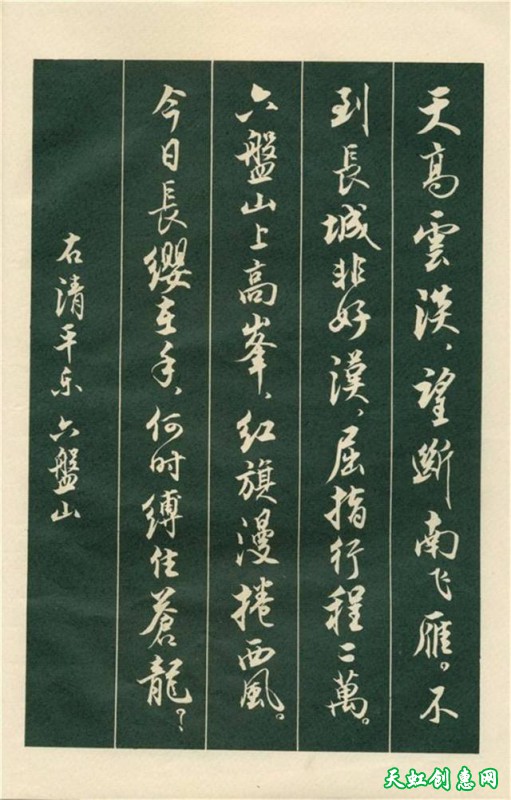 天高雲淡，望斷南飞雁。不
到長城非好漢，屈指行程二萬。
六盤山上高峯，红旗漫捲西風。
今日長缨在手，何时缚住蒼龍？
右清平乐六盤山
天虹创惠网